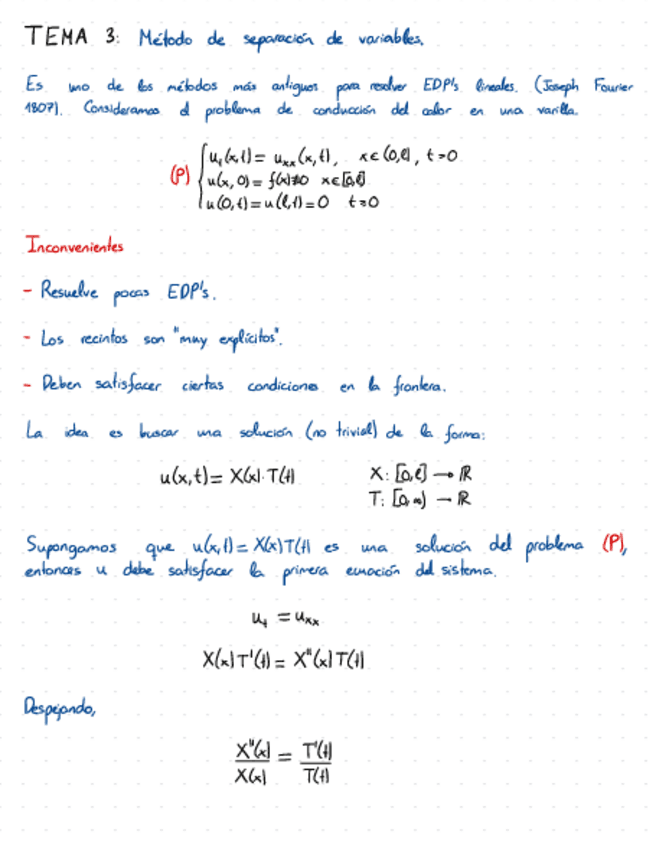 TEMA 3: Método de separación de variables.
Es uno de los métodos más antiguos para resolver EDP's lineales. (Joseph Fourier
1807). Consideramos el problema de conducción del calor en una varilla.
(P) { u_t(x,t) = u_xx(x,t), x∈(0,ℓ), t>0
u(x,0) = f(x)≠0 x∈[0,ℓ]
u(0,t) = u(ℓ,t) = 0 t≥0
Inconvenientes
- Resuelve pocas EDP's.
- Los recintos son "muy explícitos".
- Deben satisfacer ciertas condiciones en la frontera.
La idea es buscar una solución (no trivial) de la forma:
u(x,t) = X(x)·T(t) X: [0,ℓ] → ℝ
T: [0,∞) → ℝ
Supongamos que u(x,t) = X(x)T(t) es una solución del problema (P),
entonces u debe satisfacer la primera ecuación del sistema.
u_t = u_xx
X(x)T'(t) = X''(x)T(t)
Despejando,
X''(x)/X(x) = T'(t)/T(t)